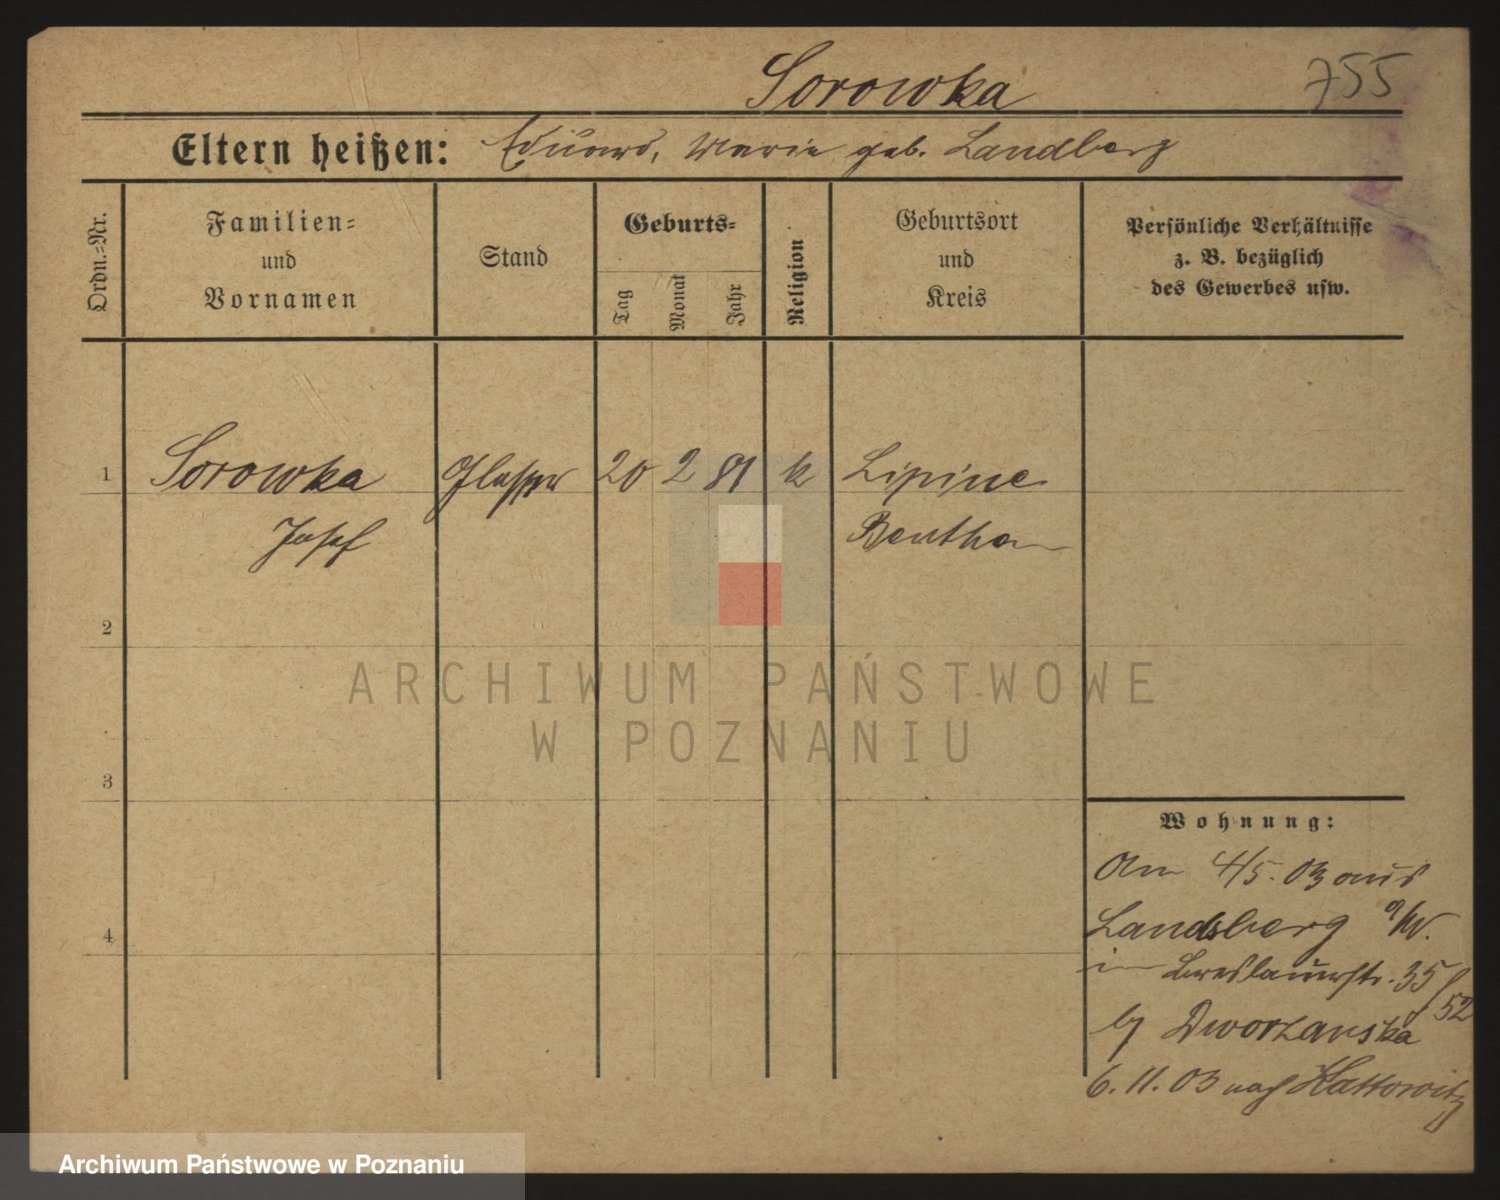 Sorowka 755
Eltern heißen: Eduard, Marie geb. Landberg
Ordn.=Nr.
Familien=
und
Vornamen
Stand
Geburts=
Tag
Monat
Jahr
Religion
Geburtsort
und
Kreis
Persönliche Verhältnisse
z. B. bezüglich
des Gewerbes usw.
1 Sorowka Glaser 20 2 81 k Lipine
Josef Beuthen
2
ARCHIWUM PAŃSTWOWE
W POZNANIU
3
Wohnung:
Am 4/5. 03 aus
4
Landsberg a/W.
in Breslauerstr. 35/52
b/ Dworzanska
6. 11. 03 nach Kattowitz
Archiwum Państwowe w Poznaniu